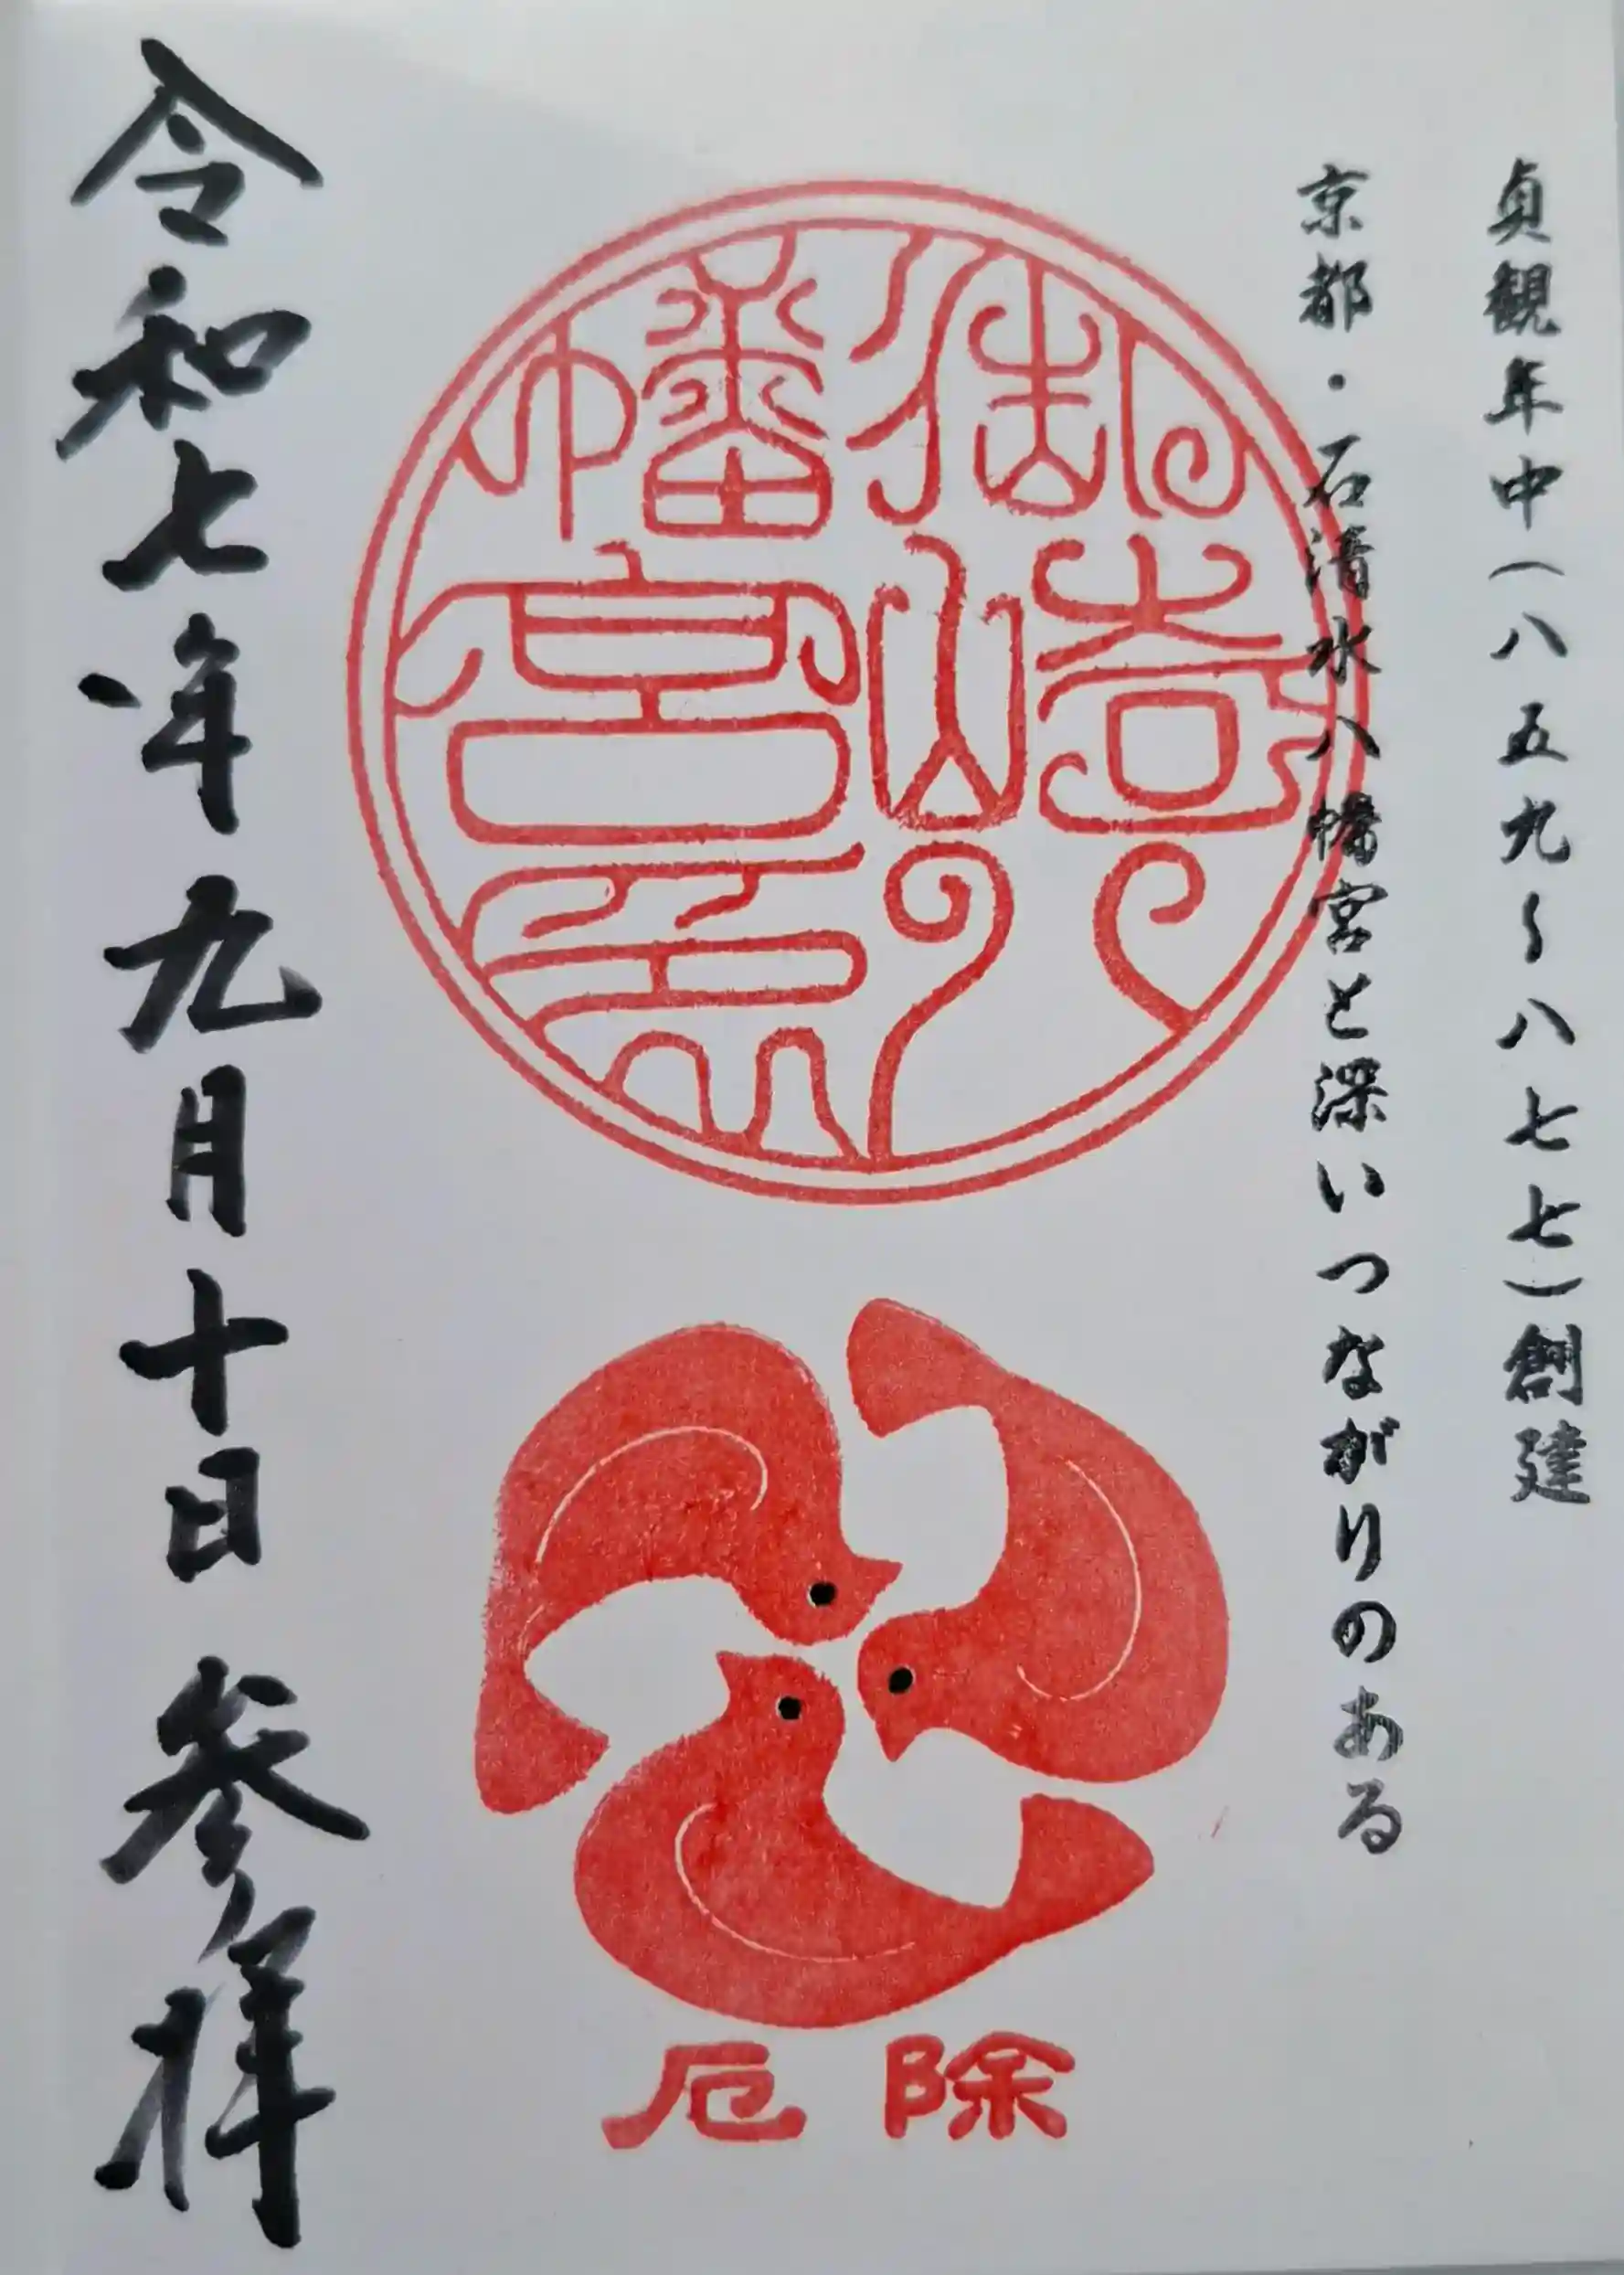 貞観年中(八五九～八七七)創建
京都・石清水八幡宮と深いつながりのある
御崎八
幡宮印
厄除
令和七年九月十日 参拝